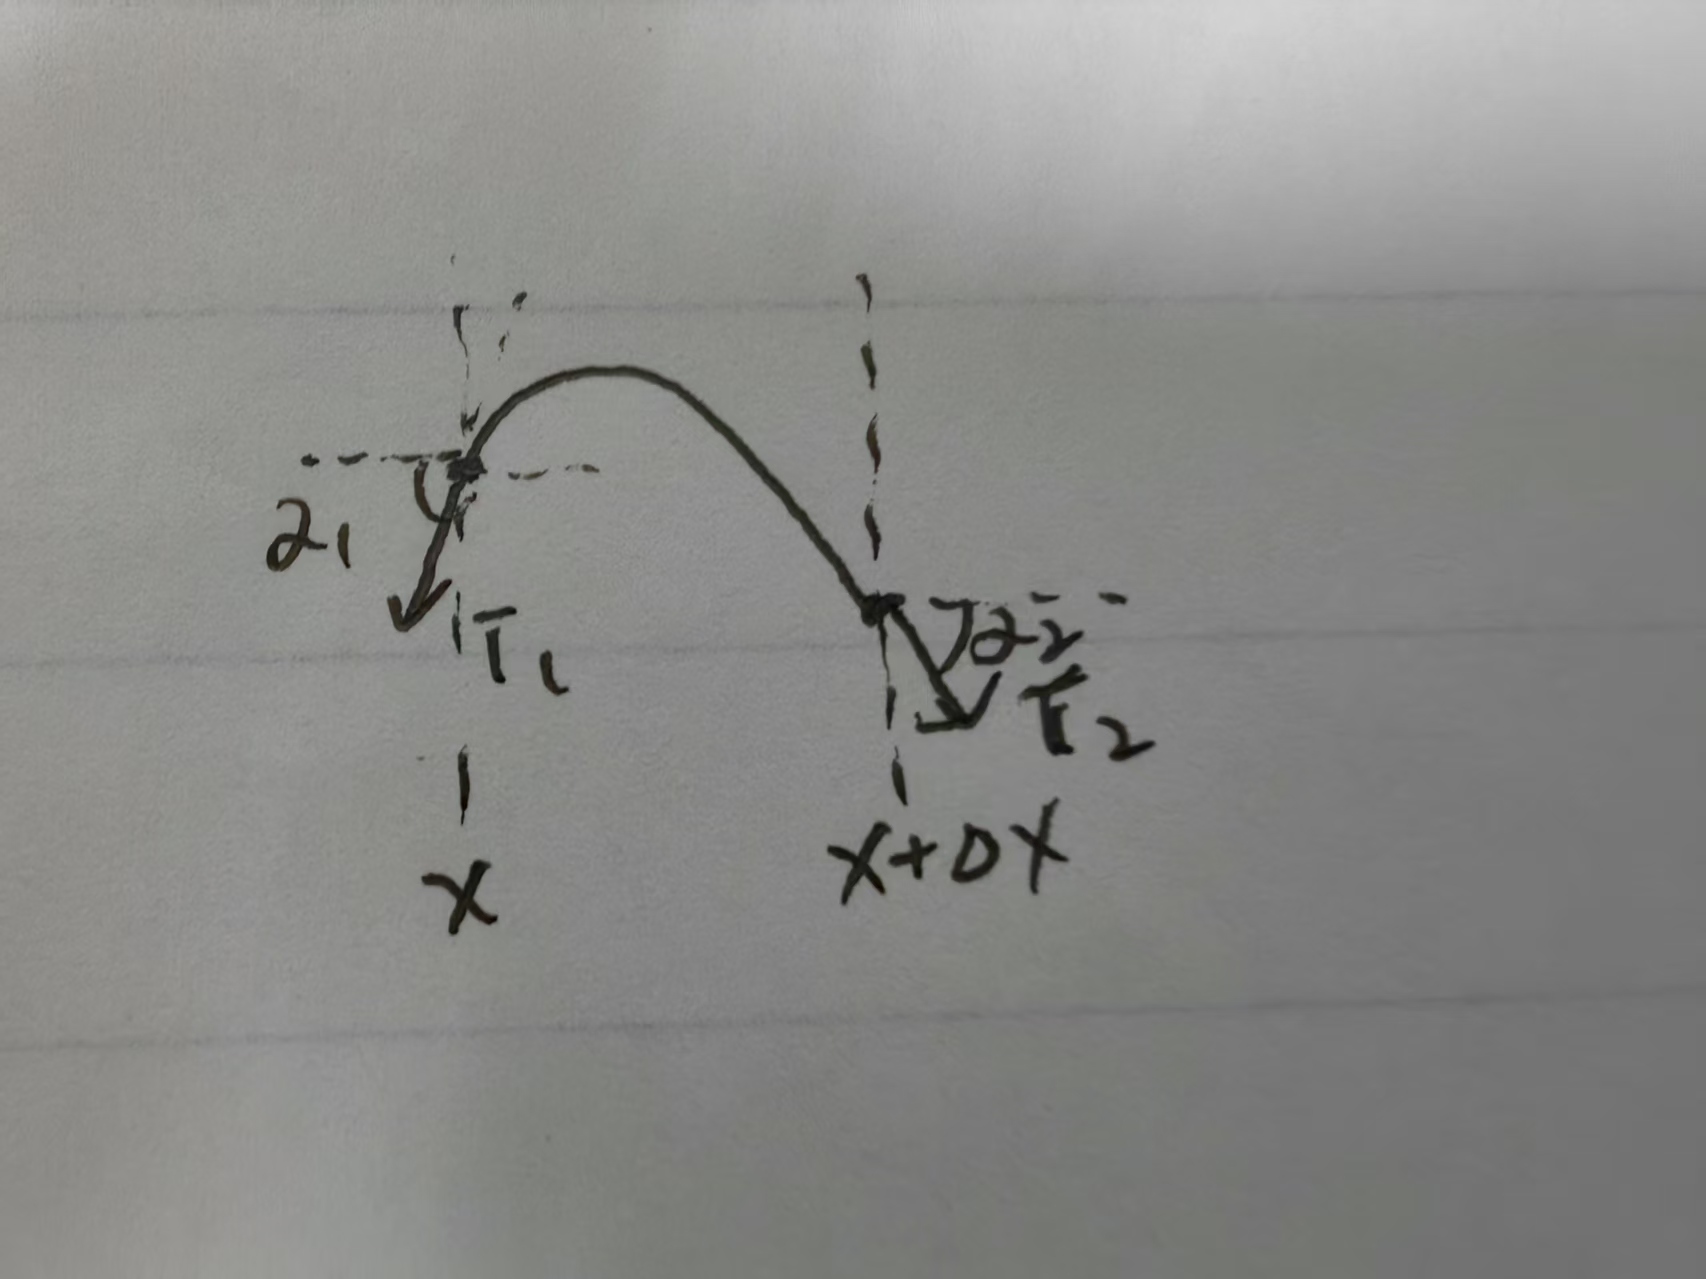 α₁
T₁
α₂
T₂
x
x+Δx